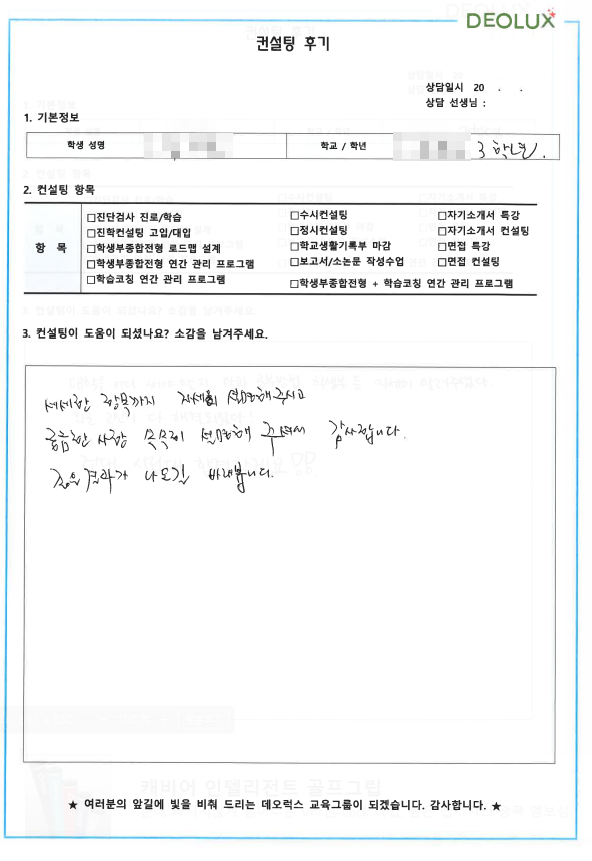 DEOLUX
컨설팅 후기
상담일시 20 . .
상담 선생님 :
1. 기본정보
학생 성명
학교 / 학년 3학년.
2. 컨설팅 항목
항 목
□진단검사 진로/학습 □수시컨설팅 □자기소개서 특강
□진학컨설팅 고입/대입 □정시컨설팅 □자기소개서 컨설팅
□학생부종합전형 로드맵 설계 □학교생활기록부 마감 □면접 특강
□학생부종합전형 연간 관리 프로그램 □보고서/소논문 작성수업 □면접 컨설팅
□학습코칭 연간 관리 프로그램 □학생부종합전형 + 학습코칭 연간 관리 프로그램
3. 컨설팅이 도움이 되셨나요? 소감을 남겨주세요.
세세한 항목까지 자세히 설명해주시고
궁금한 사항 속속히 설명해 주셔서 감사합니다.
좋은결과가 나오길 바래봅니다.
★ 여러분의 앞길에 빛을 비춰 드리는 데오럭스 교육그룹이 되겠습니다. 감사합니다. ★